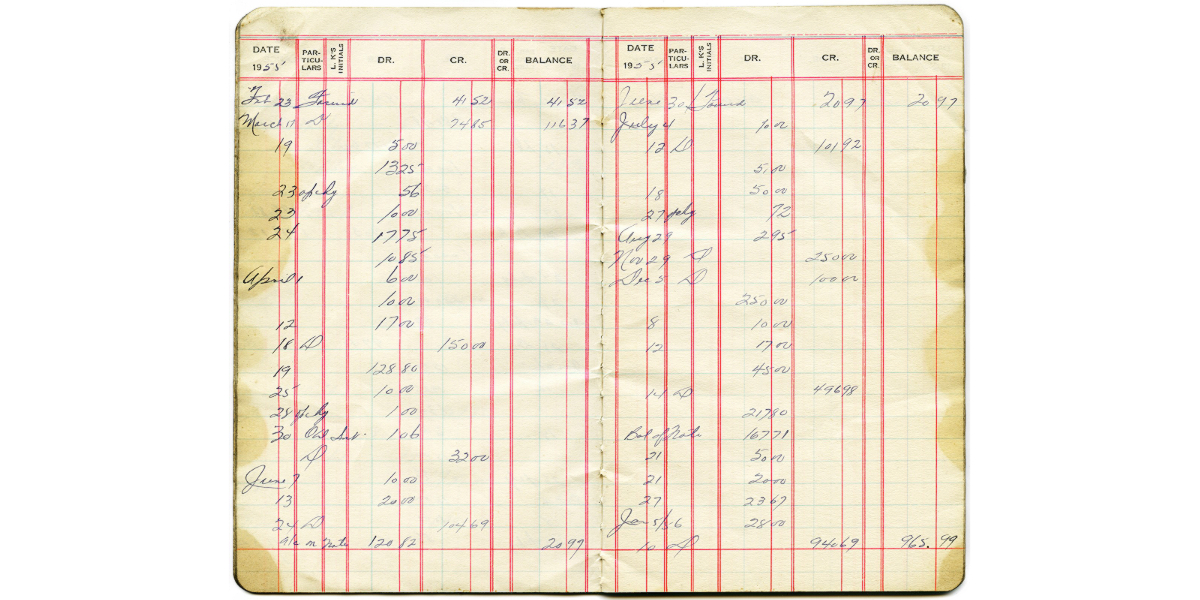 DATE 1955 PAR-TICU-LARS L. K'S INITIALS DR. CR. DR. OR CR. BALANCE
Feb 23 Forward 41 52 41 52
March 17 D 74 85 116 37
19 5 00
13 25
23 op chg 56
23 10 00
24 17 75
10 85
April 1 6 00
10 00
12 17 00
18 D 150 00
19 128 80
25 10 00
28 op chg 1 00
30 1 06
D 32 00
June 7 10 00
13 20 00
24 D 104 69
a/c m Note 120 82 20 99
DATE 1955 PAR-TICU-LARS L. K'S INITIALS DR. CR. DR. OR CR. BALANCE
June 30 Forward 20 97 20 97
July 4 10 00
12 D 101 92
5 00
18 50 00
27 chg 72
Aug 29 2 95
Nov 29 D 250 00
Dec 5 D 100 00
250 00
8 10 00
12 17 00
45 00
14 D 496 98
217 80
Bal of Note 167 71
21 50 00
21 20 00
27 23 67
Jan 5/56 28 00
10 D 940 69 965.99